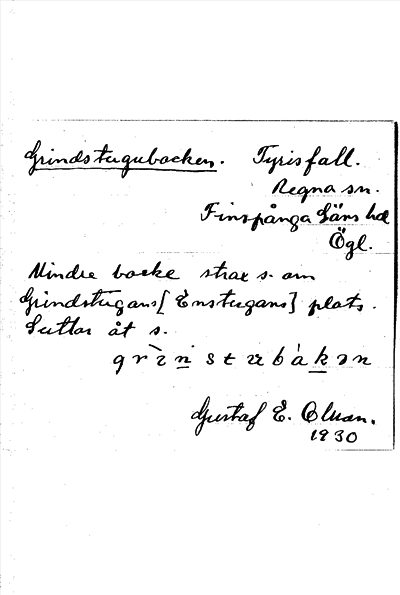 Grindstugubacken. Tyrisfall.
Regna sn.
Finspånga Läns hd
Ögl.
Mindre backe strax s. om
Grindstugans [Enstugans] plats.
Sluttar åt s.
Gustaf E.
1930